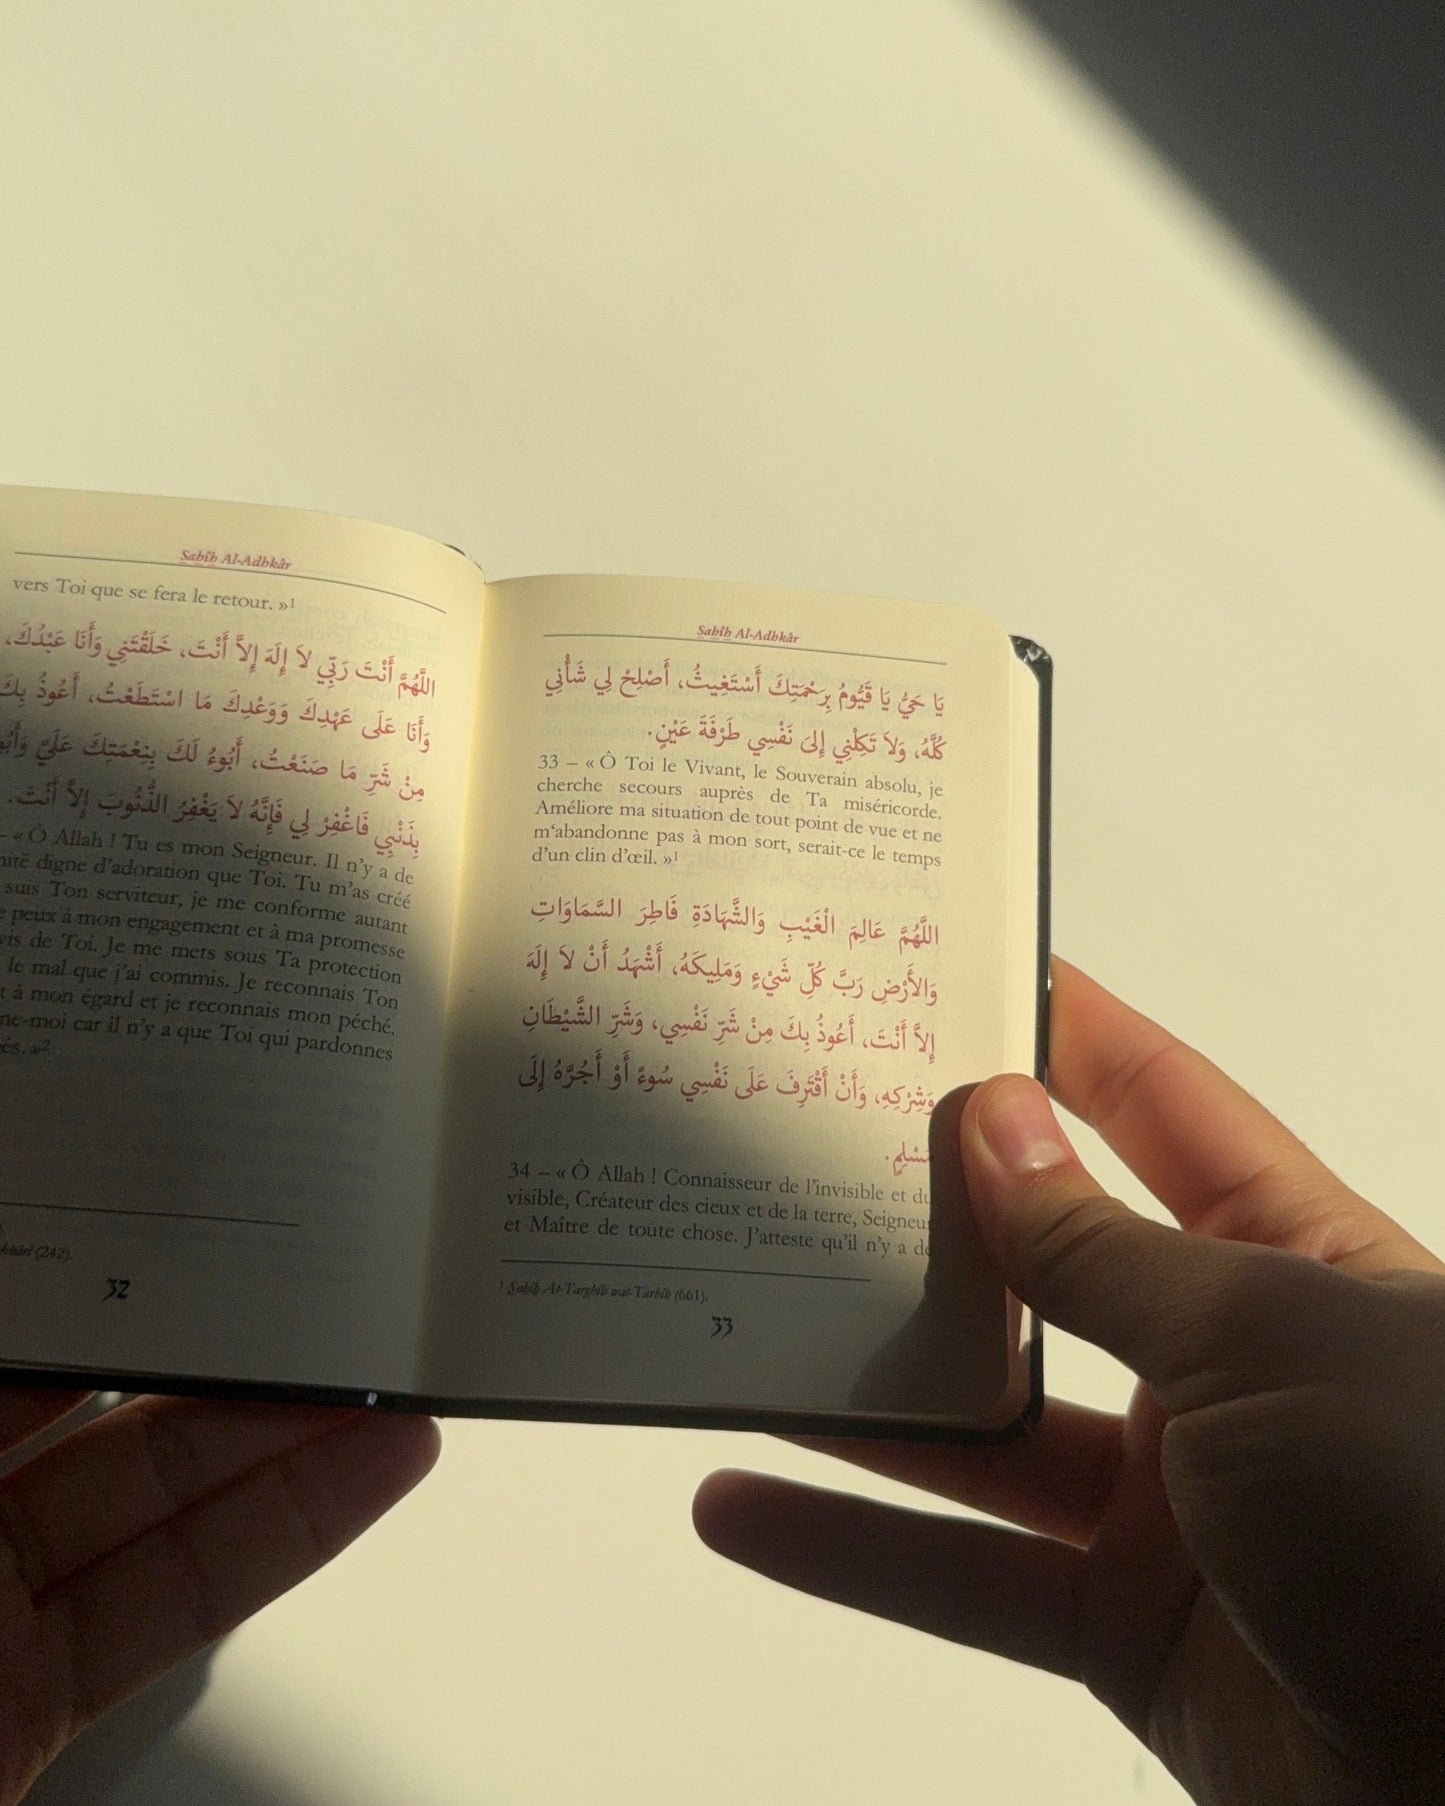 Sahîh Al-Adhkâr
vers Toi que se fera le retour. »¹
اللَّهُمَّ أَنْتَ رَبِّي لاَ إِلَهَ إِلاَّ أَنْتَ، خَلَقْتَنِي وَأَنَا عَبْدُكَ،
وَأَنَا عَلَى عَهْدِكَ وَوَعْدِكَ مَا اسْتَطَعْتُ، أَعُوذُ بِكَ
مِنْ شَرِّ مَا صَنَعْتُ، أَبُوءُ لَكَ بِنِعْمَتِكَ عَلَيَّ
بِذَنْبِي فَاغْفِرْ لِي فَإِنَّهُ لاَ يَغْفِرُ الذُّنُوبَ إِلاَّ أَنْتَ.
– « Ô Allah ! Tu es mon Seigneur. Il n'y a de
digne d'adoration que Toi. Tu m'as créé
suis Ton serviteur, je me conforme autant
peux à mon engagement et à ma promesse
de Toi. Je me mets sous Ta protection
le mal que j'ai commis. Je reconnais Ton
à mon égard et je reconnais mon péché.
car il n'y a que Toi qui pardonnes
»²
(242).
32
Sahîh Al-Adhkâr
يَا حَيُّ يَا قَيُّومُ بِرَحْمَتِكَ أَسْتَغِيثُ، أَصْلِحْ لِي شَأْنِي
كُلَّهُ، وَلاَ تَكِلْنِي إِلىَ نَفْسِي طَرْفَةَ عَيْنٍ.
33 – « Ô Toi le Vivant, le Souverain absolu, je
cherche secours auprès de Ta miséricorde.
Améliore ma situation de tout point de vue et ne
m'abandonne pas à mon sort, serait-ce le temps
d'un clin d'œil. »¹
اللَّهُمَّ عَالِمَ الْغَيْبِ وَالشَّهَادَةِ فَاطِرَ السَّمَاوَاتِ
وَالأَرْضِ رَبَّ كُلِّ شَيْءٍ وَمَلِيكَهُ، أَشْهَدُ أَنْ لاَ إِلَهَ
إِلاَّ أَنْتَ، أَعُوذُ بِكَ مِنْ شَرِّ نَفْسِي، وَشَرِّ الشَّيْطَانِ
وَشِرْكِهِ، وَأَنْ أَقْتَرِفَ عَلَى نَفْسِي سُوءً أَوْ أَجُرَّهُ إِلَى
مُسْلِمٍ.
34 – « Ô Allah ! Connaisseur de l'invisible et du
visible, Créateur des cieux et de la terre, Seigneur
et Maître de toute chose. J'atteste qu'il n'y a de
¹ Sahîh At-Targhîb wat-Tarhîb (661).
33